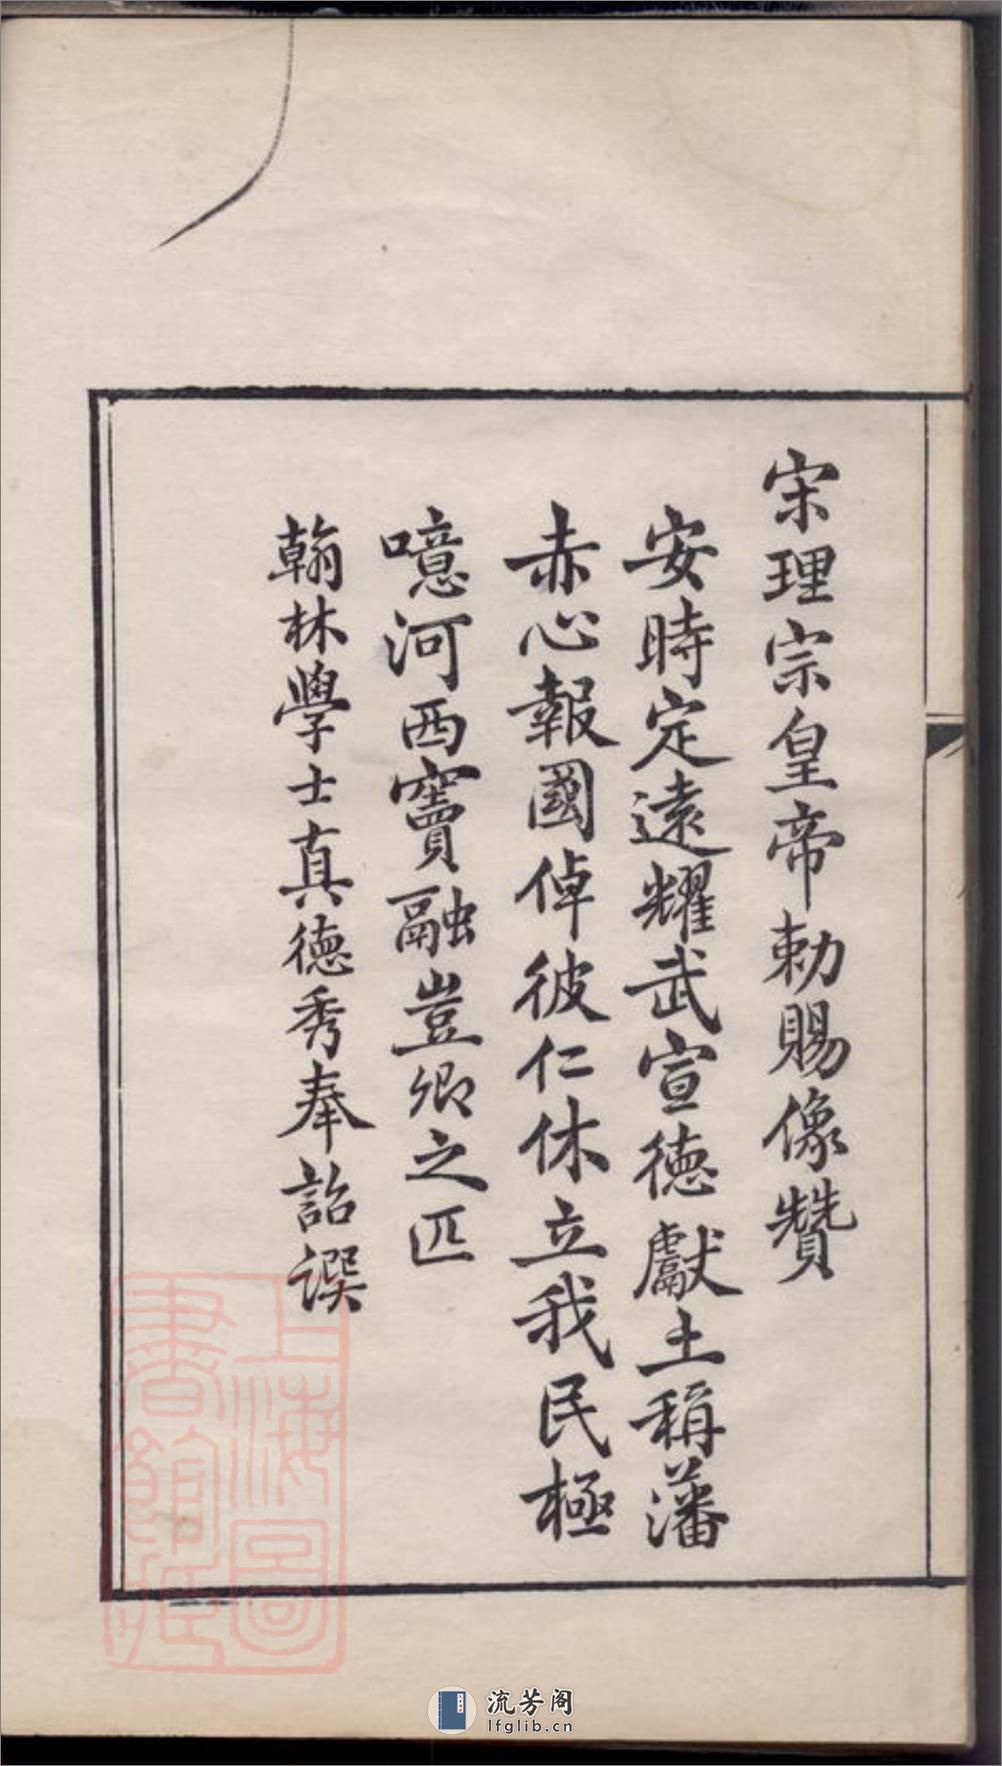 宋理宗皇帝勅賜像贊
安時定遠耀武宣德獻土稱藩
赤心報國倬彼仁休立我民極
噫河西竇融豈卿之匹
翰林學士真德秀奉詔譔
上海圖
書館藏
流芳阁
lfglib.cn